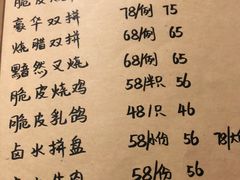 脆皮
豪华双拼 78/例 75
烧腊双拼 68/例 65
黯然叉烧 68/例 65
脆皮烧鸡 58/半只 56
脆皮乳鸽 48/只 46
卤水拼盘 58/小份 56 78/大
牛肉 58/份 56